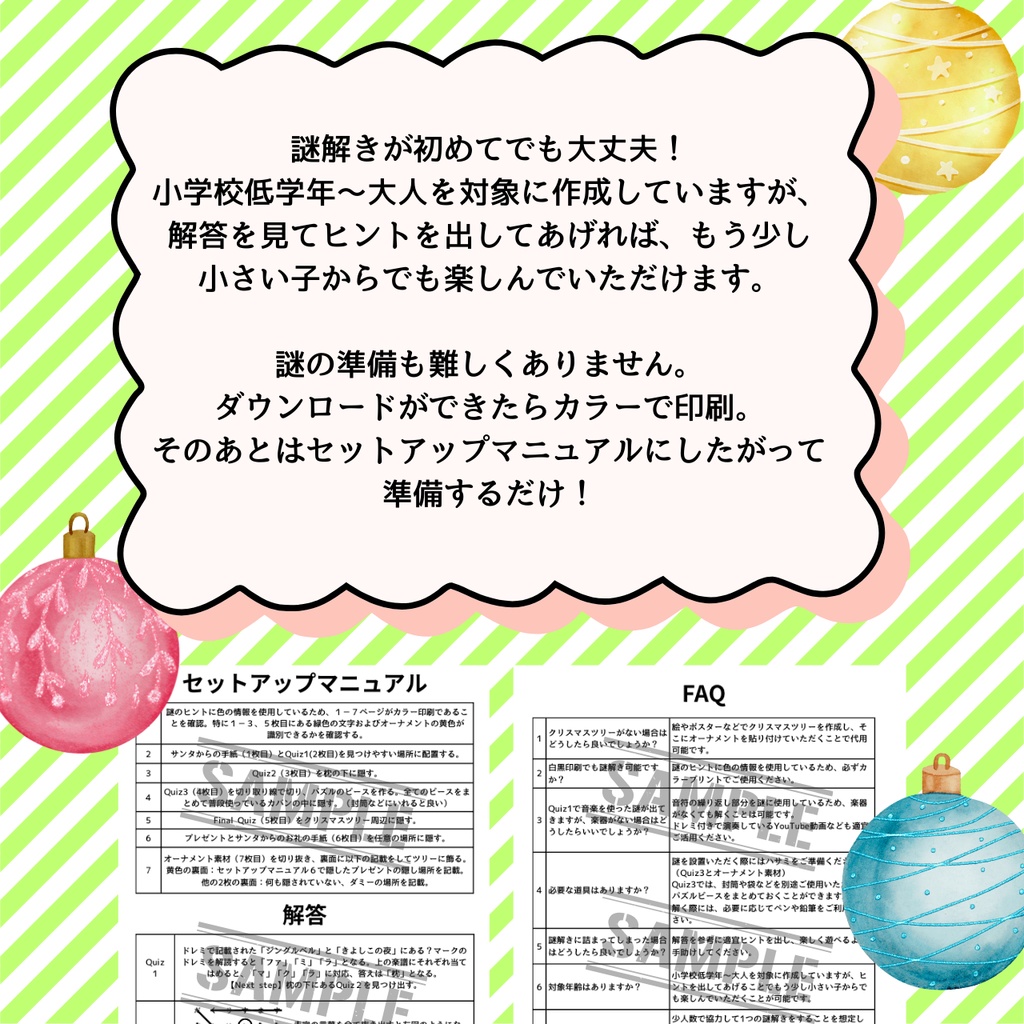 謎解きが初めてでも大丈夫！
小学校低学年～大人を対象に作成していますが、
解答を見てヒントを出してあげれば、もう少し
小さい子からでも楽しんでいただけます。
謎の準備も難しくありません。
ダウンロードができたらカラーで印刷。
そのあとはセットアップマニュアルにしたがって
準備するだけ！
セットアップマニュアル
謎のヒントに色の情報を使用しているため、１－７ページがカラー印刷であるこ
とを確認。特に１－３、５枚目にある緑色の文字およびオーナメントの黄色が
識別できるかを確認する。
2 サンタからの手紙（1枚目）とQuiz1(2枚目)を見つけやすい場所に配置する。
3 Quiz2（3枚目）を枕の下に隠す。
4 Quiz3（4枚目）を切り取り線で切り、パズルのピースを作る。全てのピースをま
とめて普段使っているカバンの中に隠す。（封筒などにいれると良い）
5 Final Quiz（5枚目）をクリスマスツリー周辺に隠す。
6 プレゼントとサンタからのお礼の手紙（6枚目）を任意の場所に隠す。
7 オーナメント素材（7枚目）を切り抜き、裏面に以下の記載をしてツリーに飾る。
黄色の裏面：セットアップマニュアル６で隠したプレゼントの隠し場所を記載。
他の2枚の裏面：何も隠されていない、ダミーの場所を記載。
SAMPLE
解答
Quiz
1
ドレミで記載された「ジングルベル」と「きよしこの夜」にある？マークの
ドレミを解読すると「ファ」「ミ」「ラ」となる。上の楽譜にそれぞれ当て
はめると、「マ」「ク」「ラ」に対応、答えは「枕」となる。
【Next step】枕の下にあるQuiz２を見つけ出す。
SAMPLE
FAQ
1 クリスマスツリーがない場合は
どうしたら良いでしょうか？
絵やポスターなどでクリスマスツリーを作成し、そ
こにオーナメントを貼り付けていただくことで代用
可能です。
2 白黒印刷でも謎解き可能です
か？
謎のヒントに色の情報を使用しているため、必ずカ
ラープリントでご使用ください。
3 Quiz1で音楽を使った謎が出て
きますが、楽器がない場合はど
うしたらいいでしょうか？
音符の繰り返し部分を謎に使用しているため、楽器
がなくても解くことは可能です。
ドレミ付きで演奏しているYouTube動画なども適宜
ご活用ください。
4 必要な道具はありますか？
謎を設置いただく際にはハサミをご準備くだ
（Quiz3とオーナメント素材）
Quiz3では、封筒や袋などを別途ご使用いた
パズルピースをまとめておくことができます
解く際には、必要に応じてペンや鉛筆をご利
さい。
5 謎解きに詰まってしまった場合
はどうしたら良いでしょうか？
解答を参考に適宜ヒントを出し、楽しく遊べるよ
手助けしてください。
6 対象年齢はありますか？
小学校低学年～大人を対象に作成していますが、ヒ
ントを出してあげることでもう少し小さい子からで
も楽しんでいただくことが可能です。
少人数で協力して1つの謎解きをすることを想定し
SAMPLE
SAMPLE